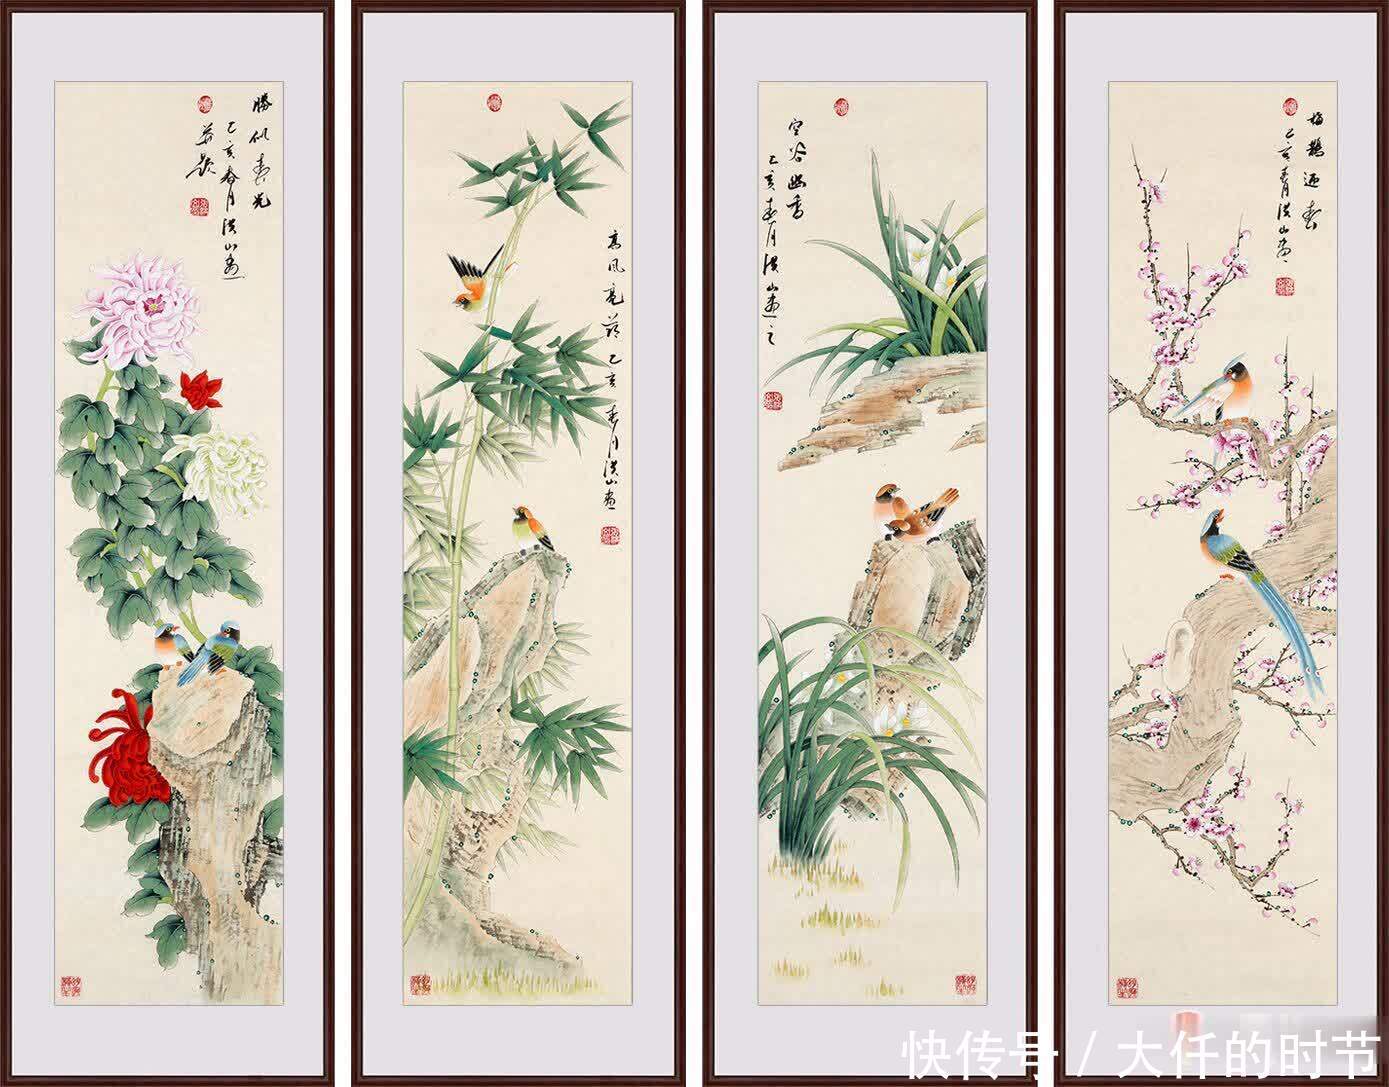 勝似春光
己亥春月洪山画
并题
高风亮節 己亥春月洪山画
空谷幽香
己亥春月洪山画之
梅鵲迎春
己亥春月洪山画
快传号 / 大仟的时节